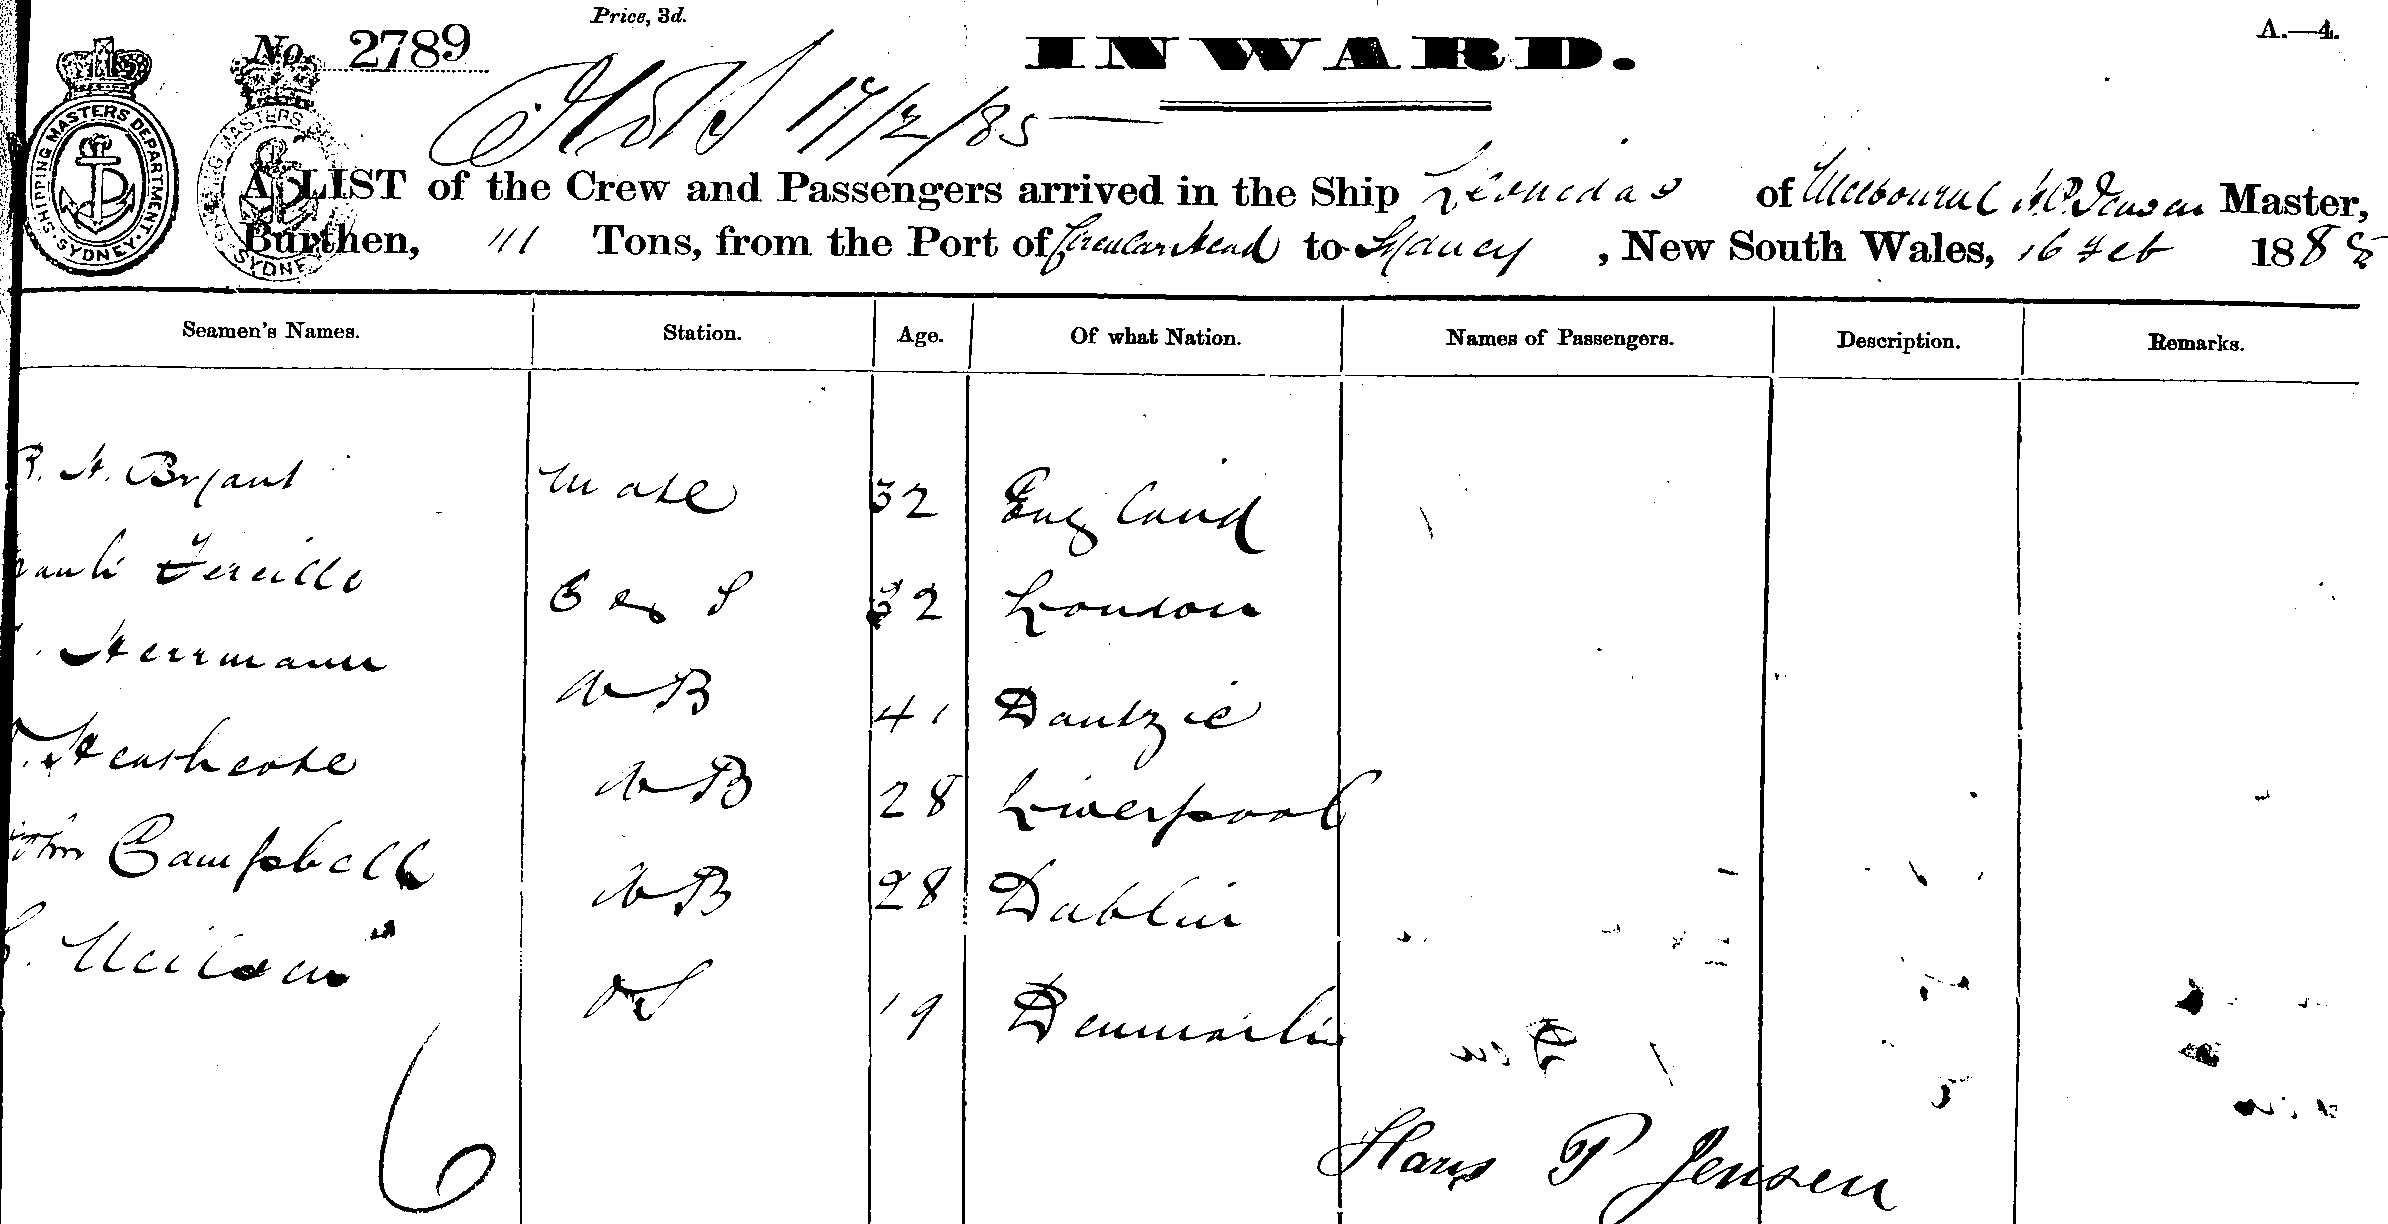 Price, 3d.
No. 2789
INWARD.
A.—4.
17/2/85
SHIPPING MASTERS DEPARTMENT. SYDNEY
A LIST of the Crew and Passengers arrived in the Ship Leonidas of Melbourne H.P. Jensen Master,
Burthen, 111 Tons, from the Port of Circular Head to Sydney, New South Wales, 16 Feb 1885
Seamen's Names. Station. Age. Of what Nation. Names of Passengers. Description. Remarks.
R. H. Bryant Mate 32 England
S 32 London
Herrmann AB 41 Dantzic
Heathcote AB 28 Liverpool
John Campbell AB 28 Dublin
Neilsen OS 19 Denmark
6
Hans P Jensen